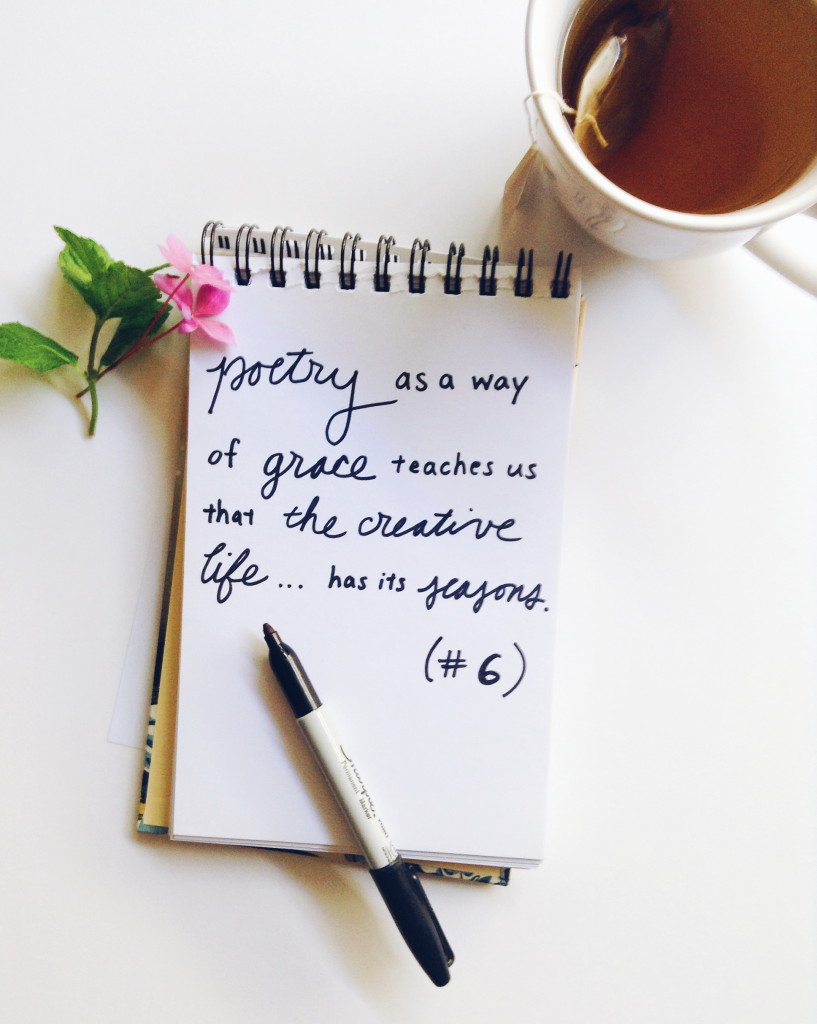 poetry as a way
of grace teaches us
that the creative
life... has its seasons.
(#6)
Permanent Marker